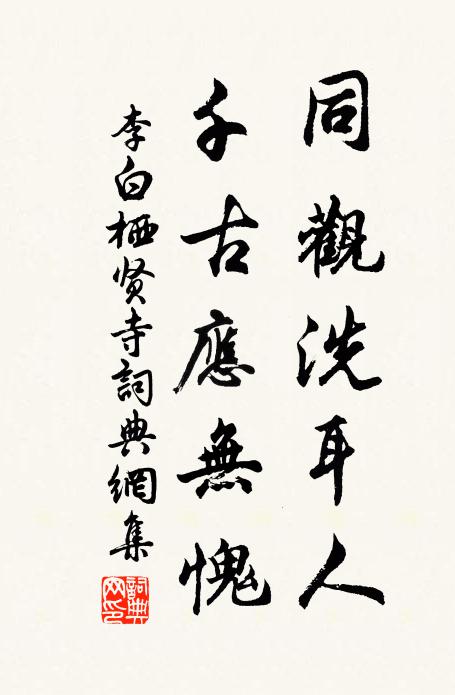 同觀洗耳人
千古應無愧
李白栖贤寺詞典網集
詞典網印